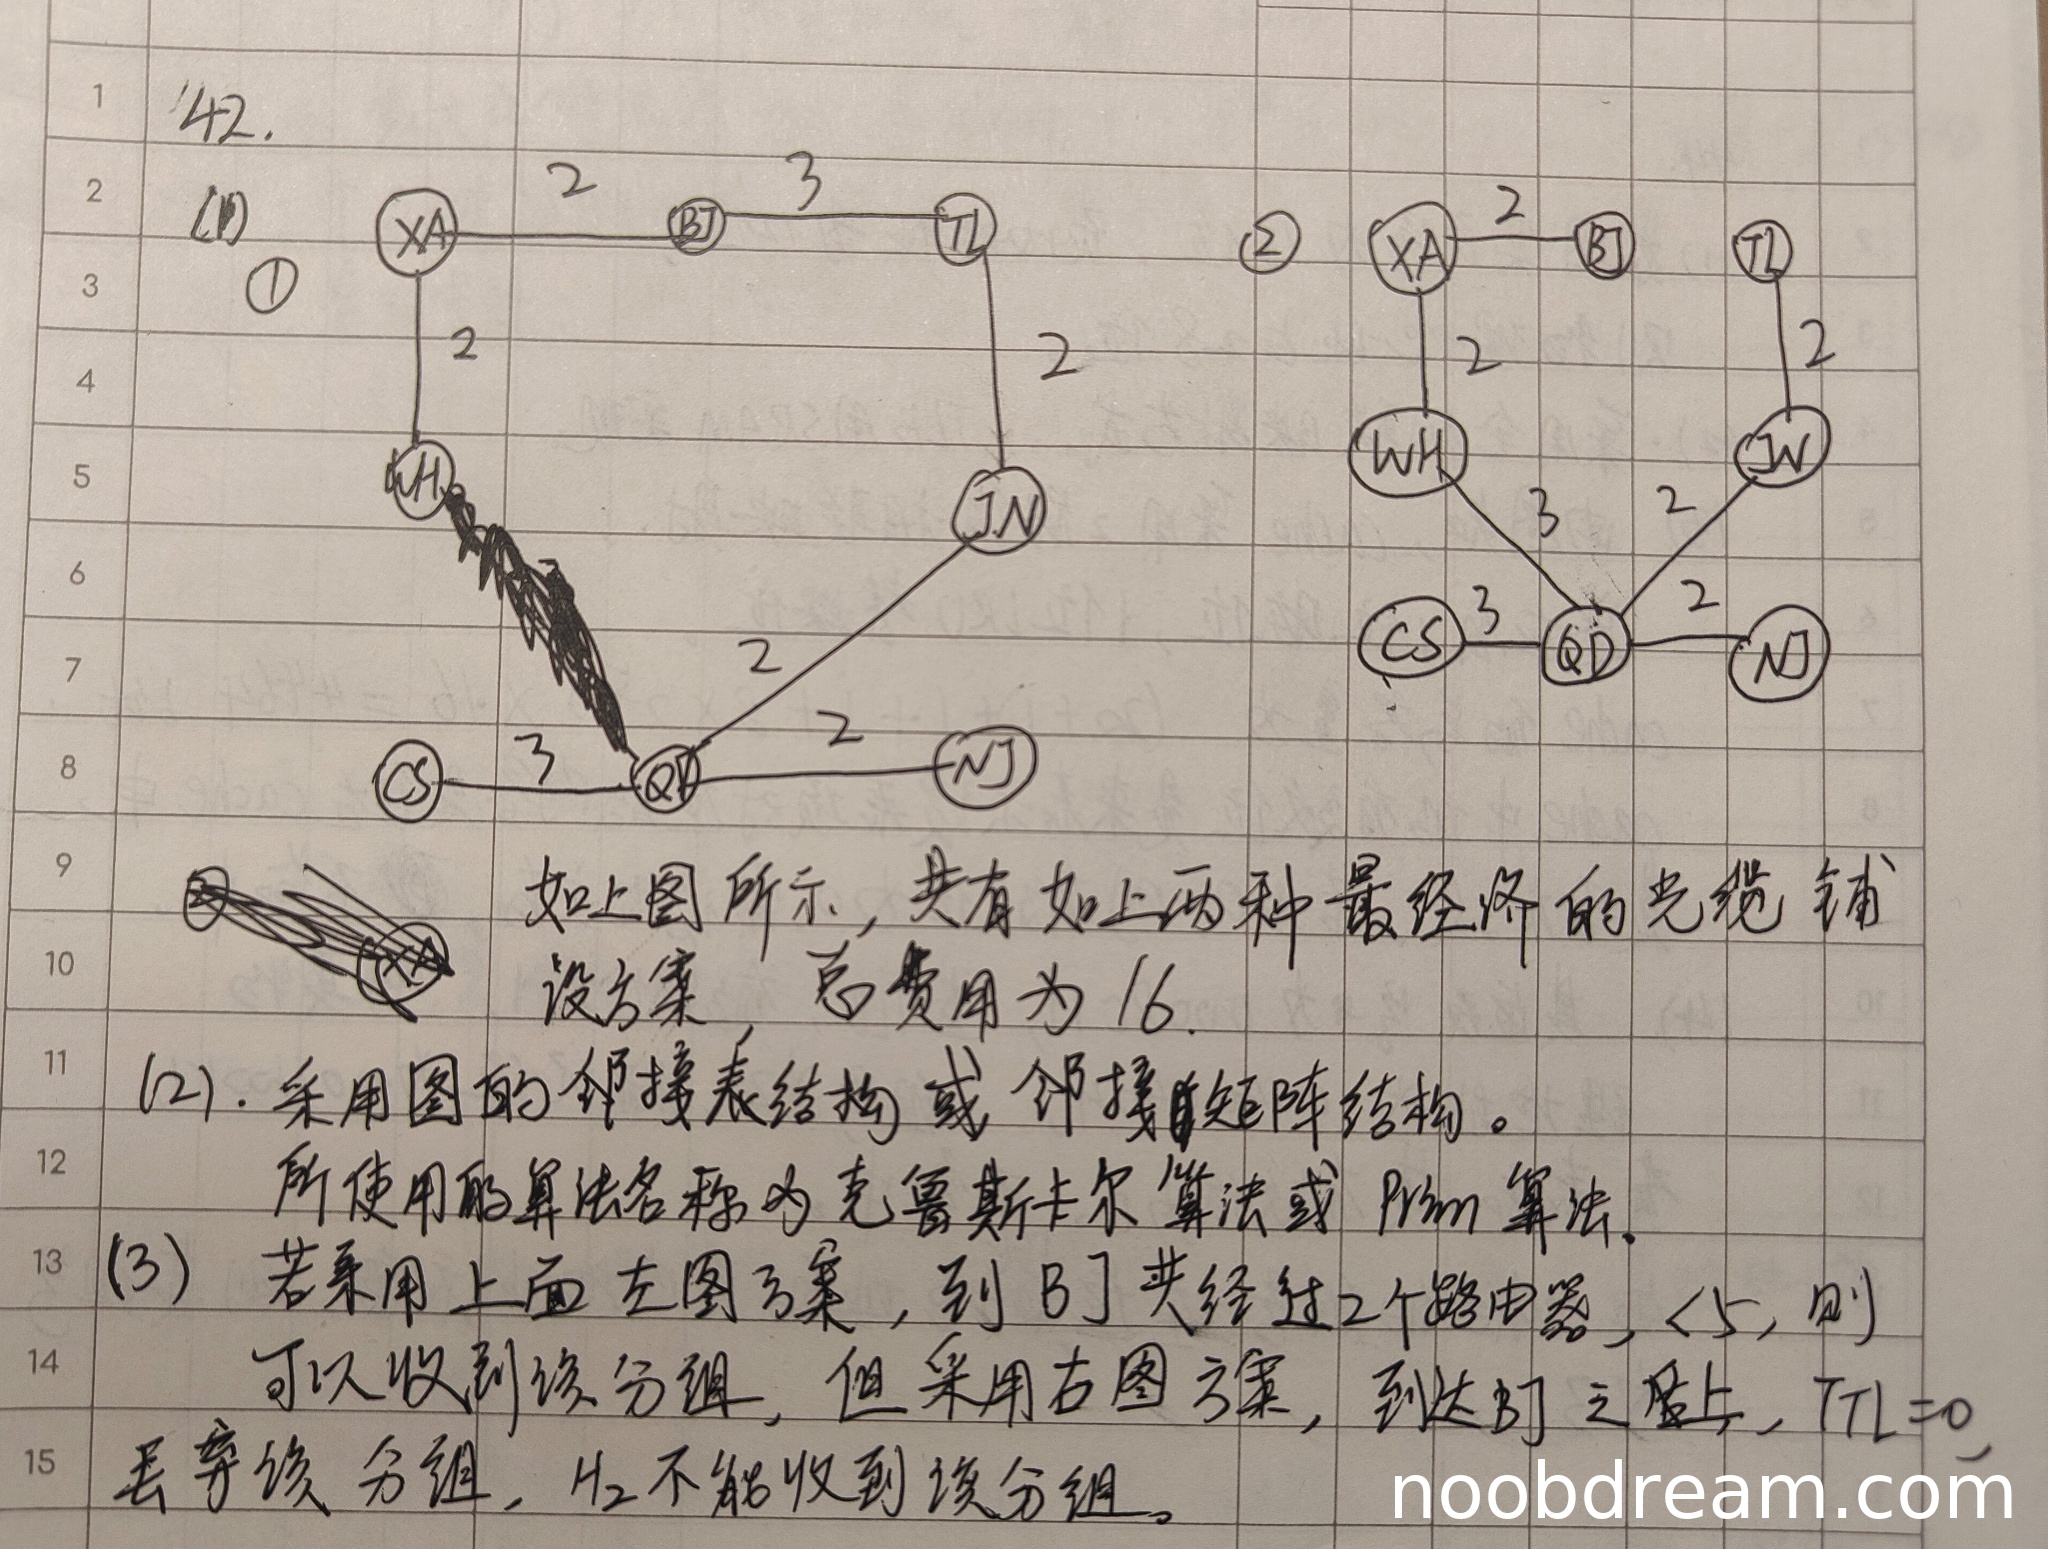 42.
(1)
① XA 2 BJ 3 TL
2 2
WH JN
2
CS 3 QD 2 NJ
② XA 2 BJ TL
2 2
WH JW
3 2
CS 3 QD 2 NJ
如上图所示,共有如上两种最经济的光缆铺
设方案,总费用为16.
(2).采用图的邻接表结构或邻接矩阵结构。
所使用的算法名称为克鲁斯卡尔算法或Prim算法.
(3) 若采用上面左图方案,到BJ共经过2个路由器,<5,则
可以收到该分组,但采用右图方案,到达BJ之后上,TTL=0,
丢弃该分组,H2不能收到该分组。
noobdream.com